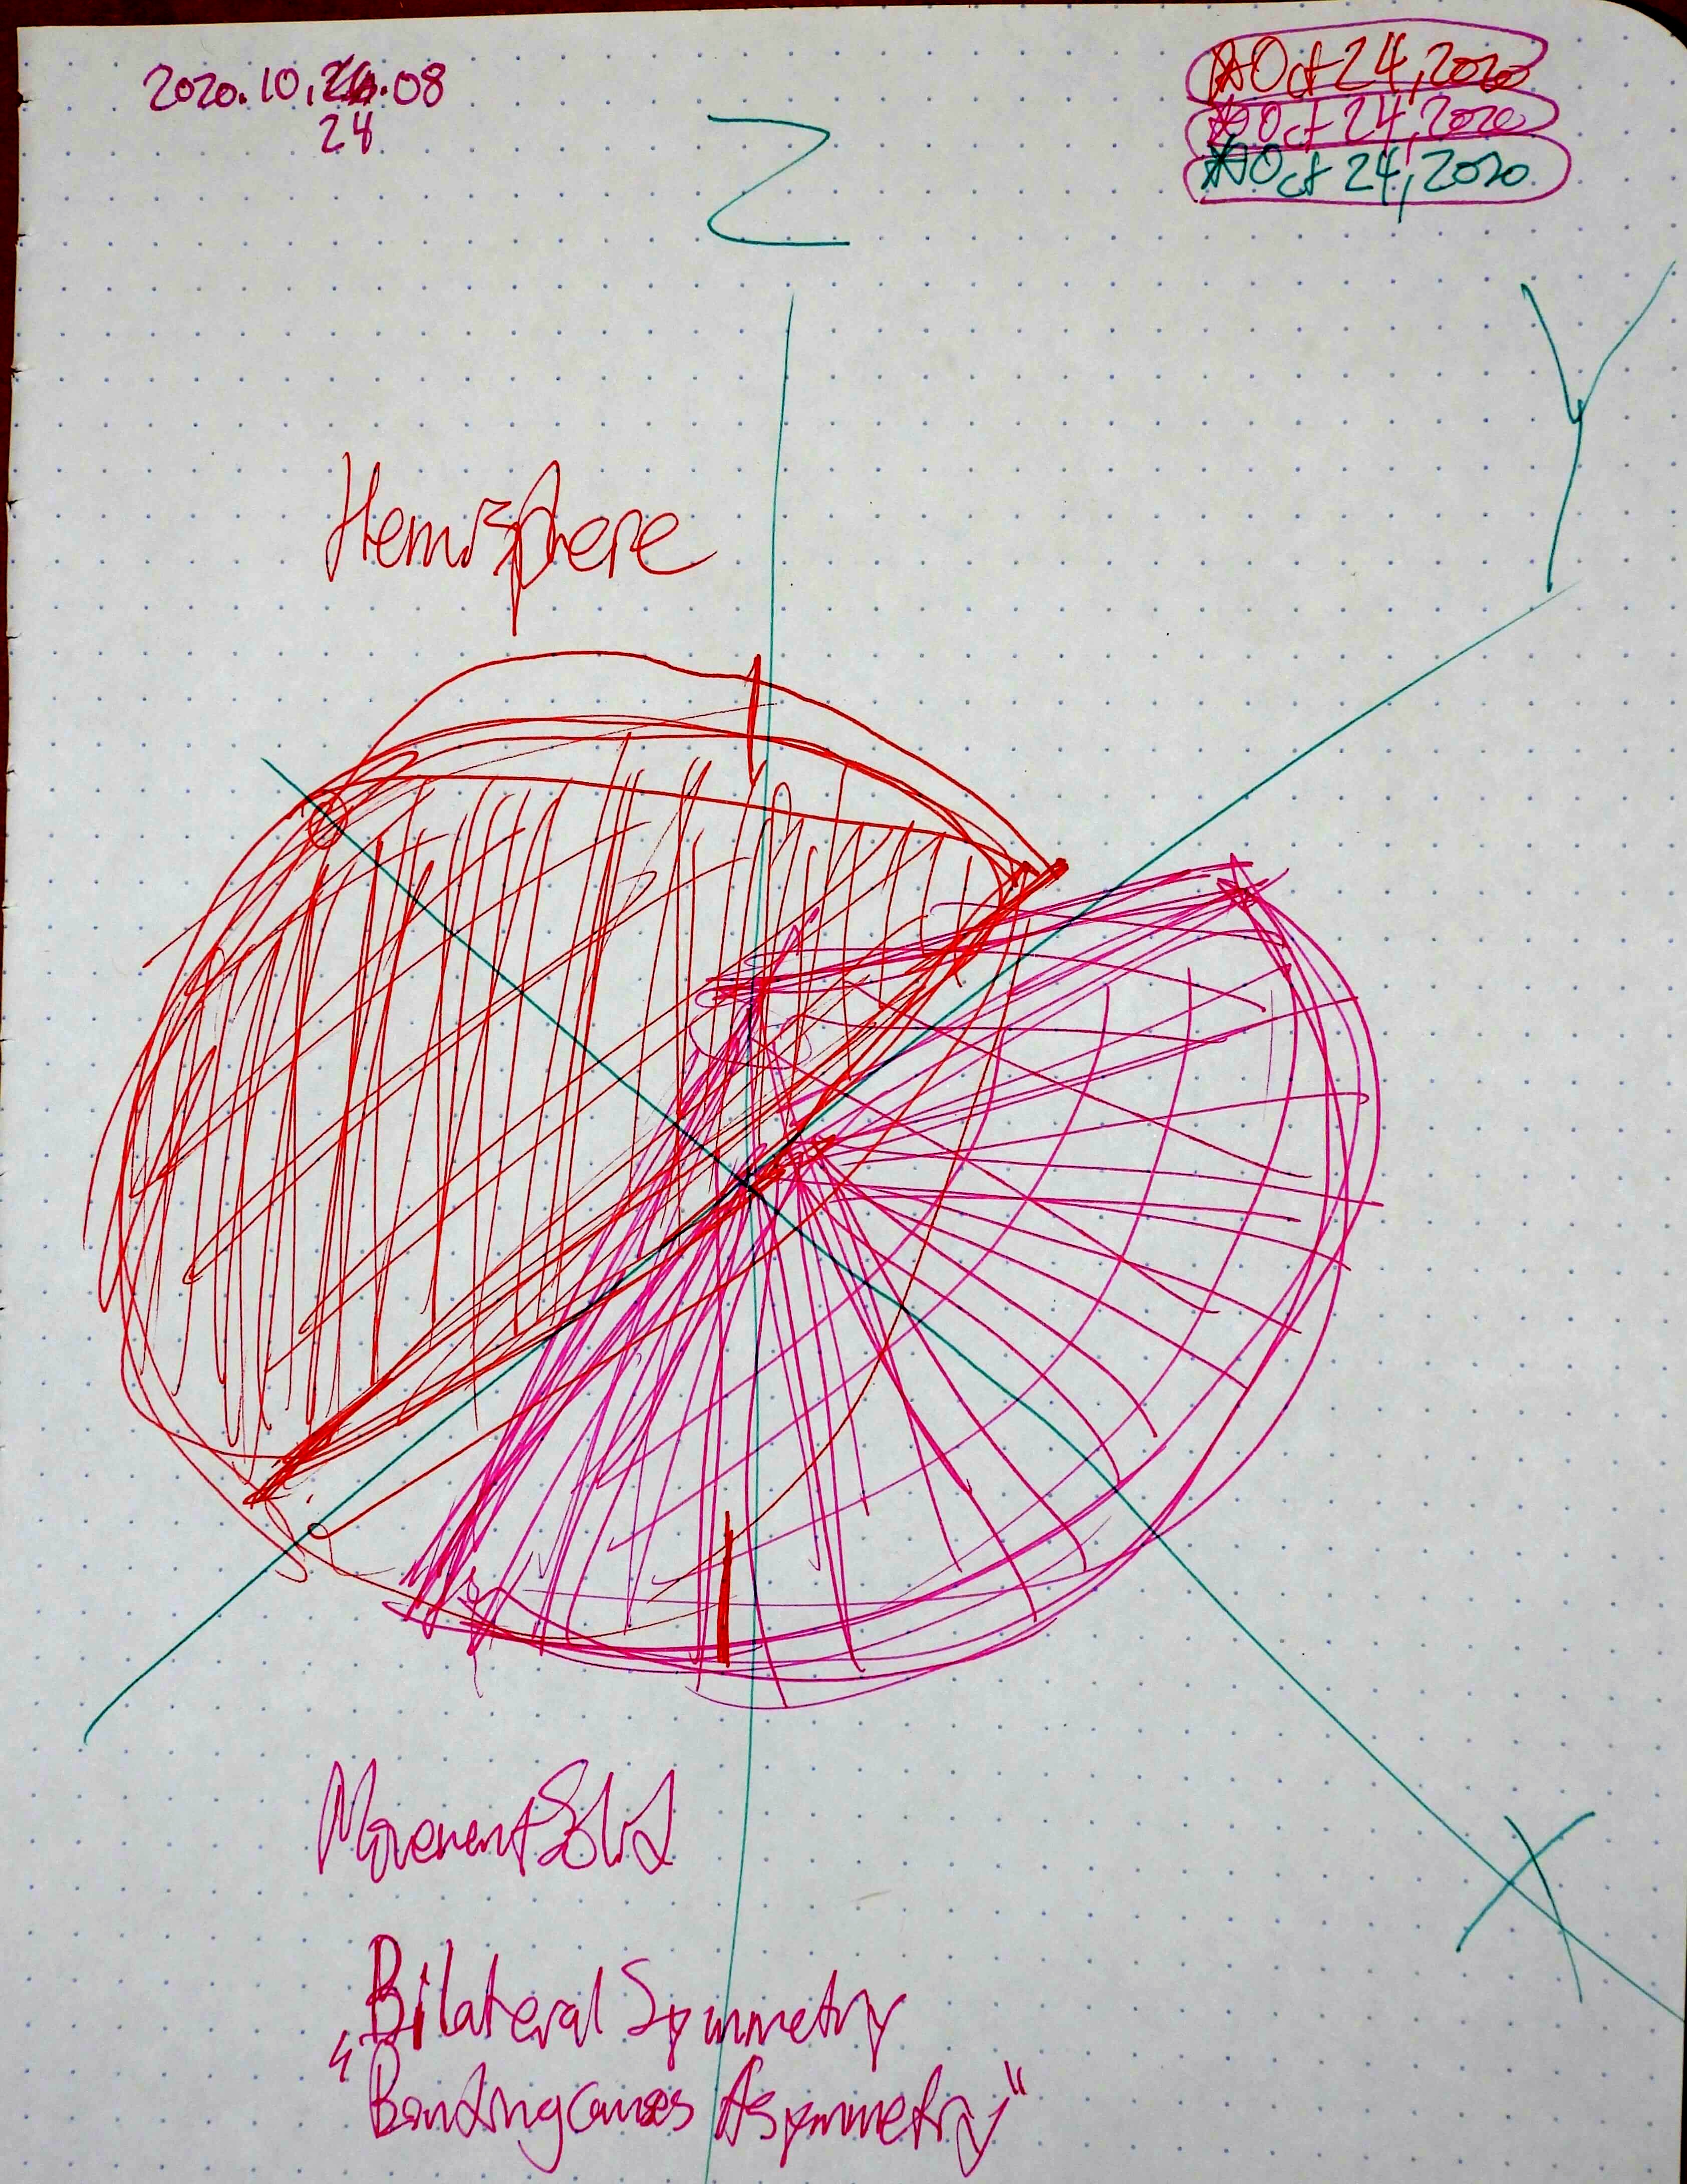 2020.10.24.08
24
Oct 24, 2020
Oct 24, 2020
Oct 24, 2020
Z
Y
Hemisphere
X
Movement Solid
Bilateral Symmetry
"Bonding causes Asymmetry"